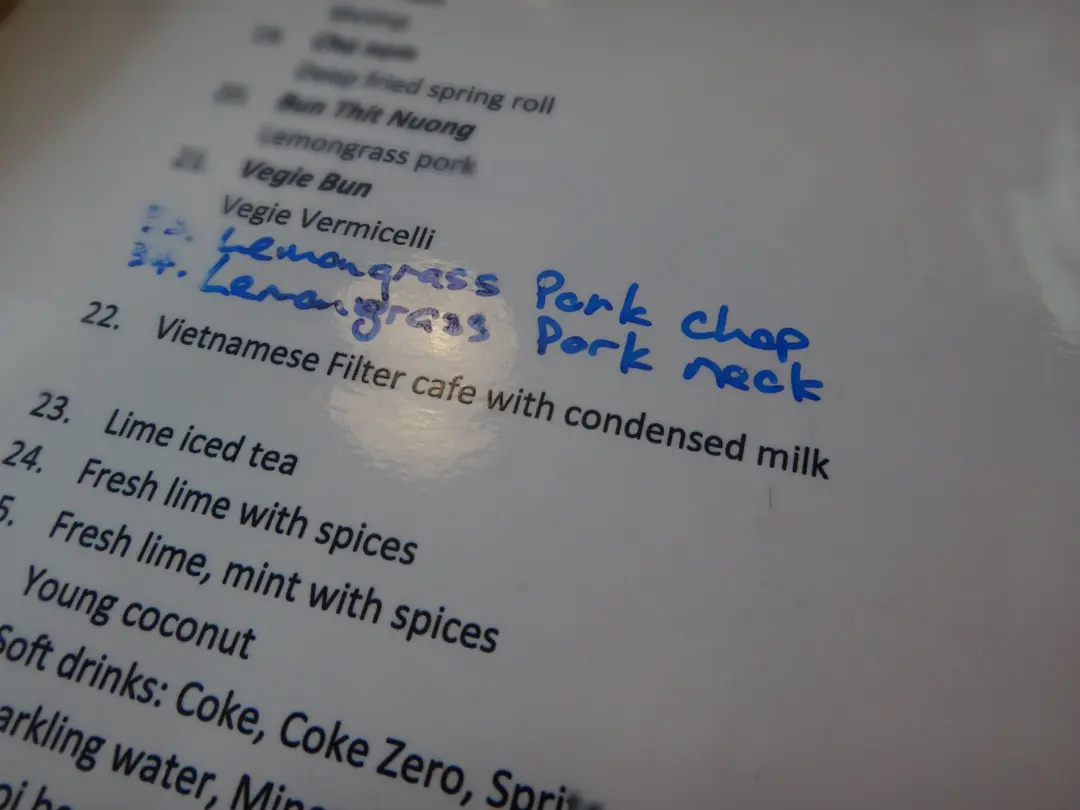 shrimp
19. Cha nam
Deep fried spring roll
20. Bun Thit Nuong
Lemongrass pork
21. Vegie Bun
Vegie Vermicelli
33. Lemongrass Pork chop
34. Lemongrass Pork neck
22. Vietnamese Filter cafe with condensed milk
23. Lime iced tea
24. Fresh lime with spices
5. Fresh lime, mint with spices
Young coconut
Soft drinks: Coke, Coke Zero, Spri
arkling water, Mine